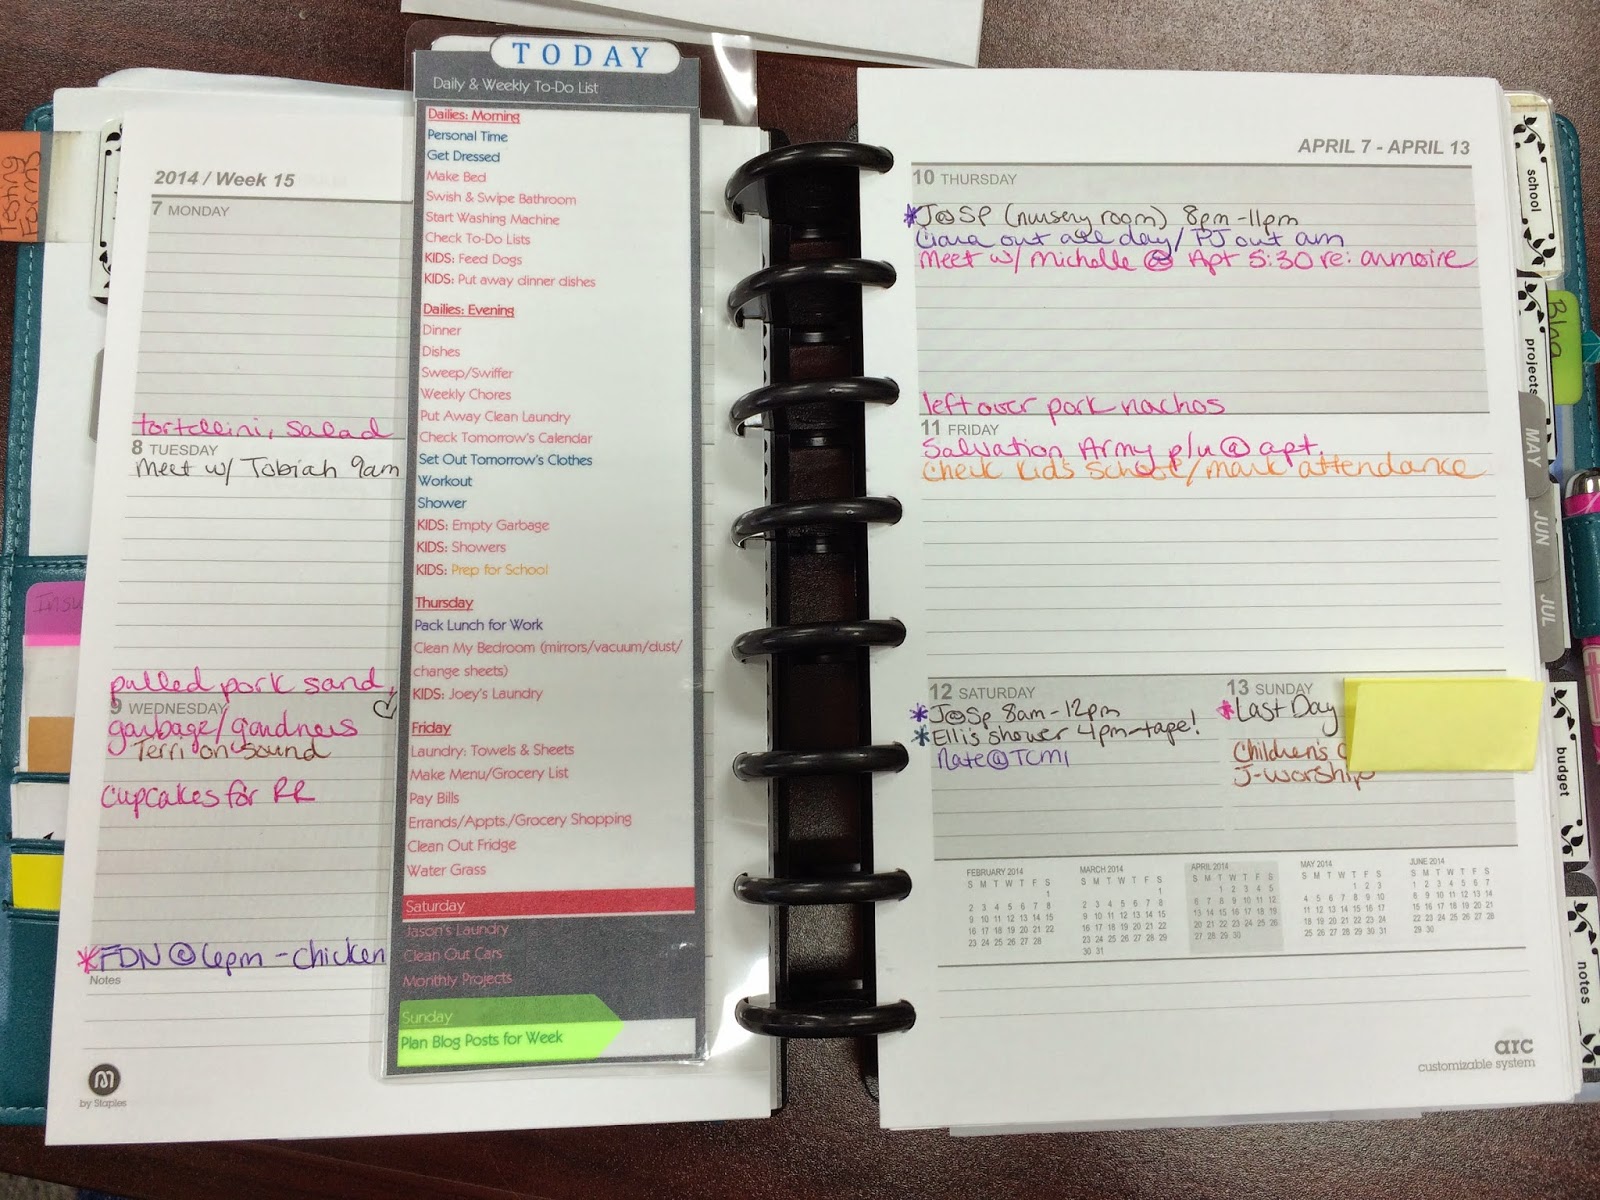 Testing
Forms
Insu
2014 / Week 15
7 MONDAY
tortellini, salad
8 TUESDAY
Meet w/ Tobiah 9am
pulled pork sand.
9 WEDNESDAY
garbage/gardners
Terri on sound
cupcakes for RR
*FDN @ 6pm - chicken
Notes
by Staples
TODAY
Daily & Weekly To-Do List
Dailies: Morning
Personal Time
Get Dressed
Make Bed
Swish & Swipe Bathroom
Start Washing Machine
Check To-Do Lists
KIDS: Feed Dogs
KIDS: Put away dinner dishes
Dailies: Evening
Dinner
Dishes
Sweep/Swiffer
Weekly Chores
Put Away Clean Laundry
Check Tomorrow's Calendar
Set Out Tomorrow's Clothes
Workout
Shower
KIDS: Empty Garbage
KIDS: Showers
KIDS: Prep for School
Thursday
Pack Lunch for Work
Clean My Bedroom (mirrors/vacuum/dust/
change sheets)
KIDS: Joey's Laundry
Friday
Laundry: Towels & Sheets
Make Menu/Grocery List
Pay Bills
Errands/Appts./Grocery Shopping
Clean Out Fridge
Water Grass
Saturday
Jason's Laundry
Clean Out Cars
Monthly Projects
Sunday
Plan Blog Posts for Week
APRIL 7 - APRIL 13
10 THURSDAY
*J@SP (nursery room) 8pm-11pm
Ciara out all day/ PJ out am
Meet w/ Michelle @ Apt 5:30 re: armoire
leftover pork nachos
11 FRIDAY
Salvation Army p/u @ apt.
Check Kids School/mark attendance
12 SATURDAY
*J@Sp 8am-12pm
*Elli's shower 4pm-tape!
Nate@TCMI
13 SUNDAY
*Last Day
Children's
J-Worship
FEBRUARY 2014
S M T W T F S
1
2 3 4 5 6 7 8
9 10 11 12 13 14 15
16 17 18 19 20 21 22
23 24 25 26 27 28
MARCH 2014
S M T W T F S
1
2 3 4 5 6 7 8
9 10 11 12 13 14 15
16 17 18 19 20 21 22
23 24 25 26 27 28 29
30 31
APRIL 2014
S M T W T F S
1 2 3 4 5
6 7 8 9 10 11 12
13 14 15 16 17 18 19
20 21 22 23 24 25 26
27 28 29 30
MAY 2014
S M T W T F S
1 2 3
4 5 6 7 8 9 10
11 12 13 14 15 16 17
18 19 20 21 22 23 24
25 26 27 28 29 30 31
JUNE 2014
S M T W T F S
1 2 3 4 5 6 7
8 9 10 11 12 13 14
15 16 17 18 19 20 21
22 23 24 25 26 27 28
29 30
arc
customizable system
school
Blog
projects
MAY
JUN
JUL
budget
notes